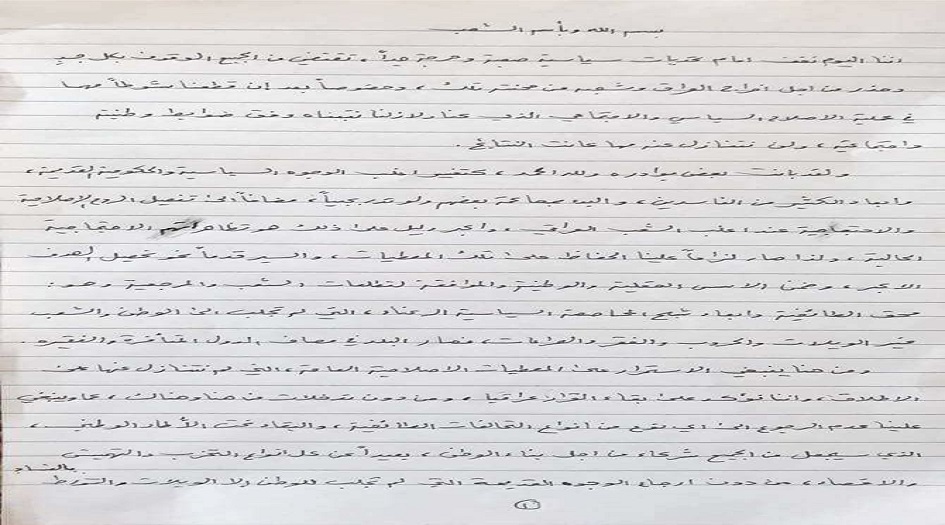 بسم الله وبأسم الشعب
اننا اليوم نقف امام تحديات سياسية صعبة وحرجة جداً، تقتضي من الجميع الوقوف بكل حيد
وحذر من اجل اخراج العراق وشعبه من محنته تلك، وخصوصاً بعد ان قطعنا شوطاً مهما
في عملية الاصلاح السياسي والاجتماعي الذي كنا ولازلنا نتبناه وفق ضوابط وطنية
واجتماعية، ولن نتنازل عنه مهما كانت النتائج.
ولقد بانت بعض بوادره ولله الحمد، كتغيير اغلب الوجوه السياسية والحكومية القديمة،
وابعاد الكثير من الفاسدين، والبدء بمحاكمة بعضهم ولو تدريجياً، مضافاً الى تفعيل الروح الإصلاحية
والاحتجاجية عند اغلب الشعب العراقي، واكبر دليل على ذلك هو تظاهراتهم الاحتجاجية
الحالية، ولذا صار لزاماً علينا الحفاظ على تلك المعطيات، والسير قدماً نحو تحصيل الهدف
الاكبر، وضمن الاسس العقلية والوطنية والموافقة لتطلعات الشعب والمرجعية وهو:
محق الطائفية وابعاد شبح المحاصصة السياسية الرعناء، التي لم تجلب الى الوطن والشعب
غير الويلات والحروب والفقر والصراعات، فصار البلد في مصاف الدول المتأخرة والفقيره.
ومن هنا ينبغي الاستمرار على المعطيات الاصلاحية العامة، التي لم نتنازل عنها على
الاطلاق، واننا نؤكد على بقاء القرار عراقيا، ومن دون تدخلات من هنا وهناك، كما وينبغي
علينا عدم الرجوع الى اي نوع من انواع التحالفات الطائفية، والبقاء تحت الأطار الوطني،
الذي سيجعل من الجميع شركاء من اجل بناء الوطن، بعيداً عن كل انواع التحزب والتهميش
والاقصاء، من دون ارجاع الوجوه القديمة التي لم تجلب للوطن إلا الويلات والتورط بالفساد